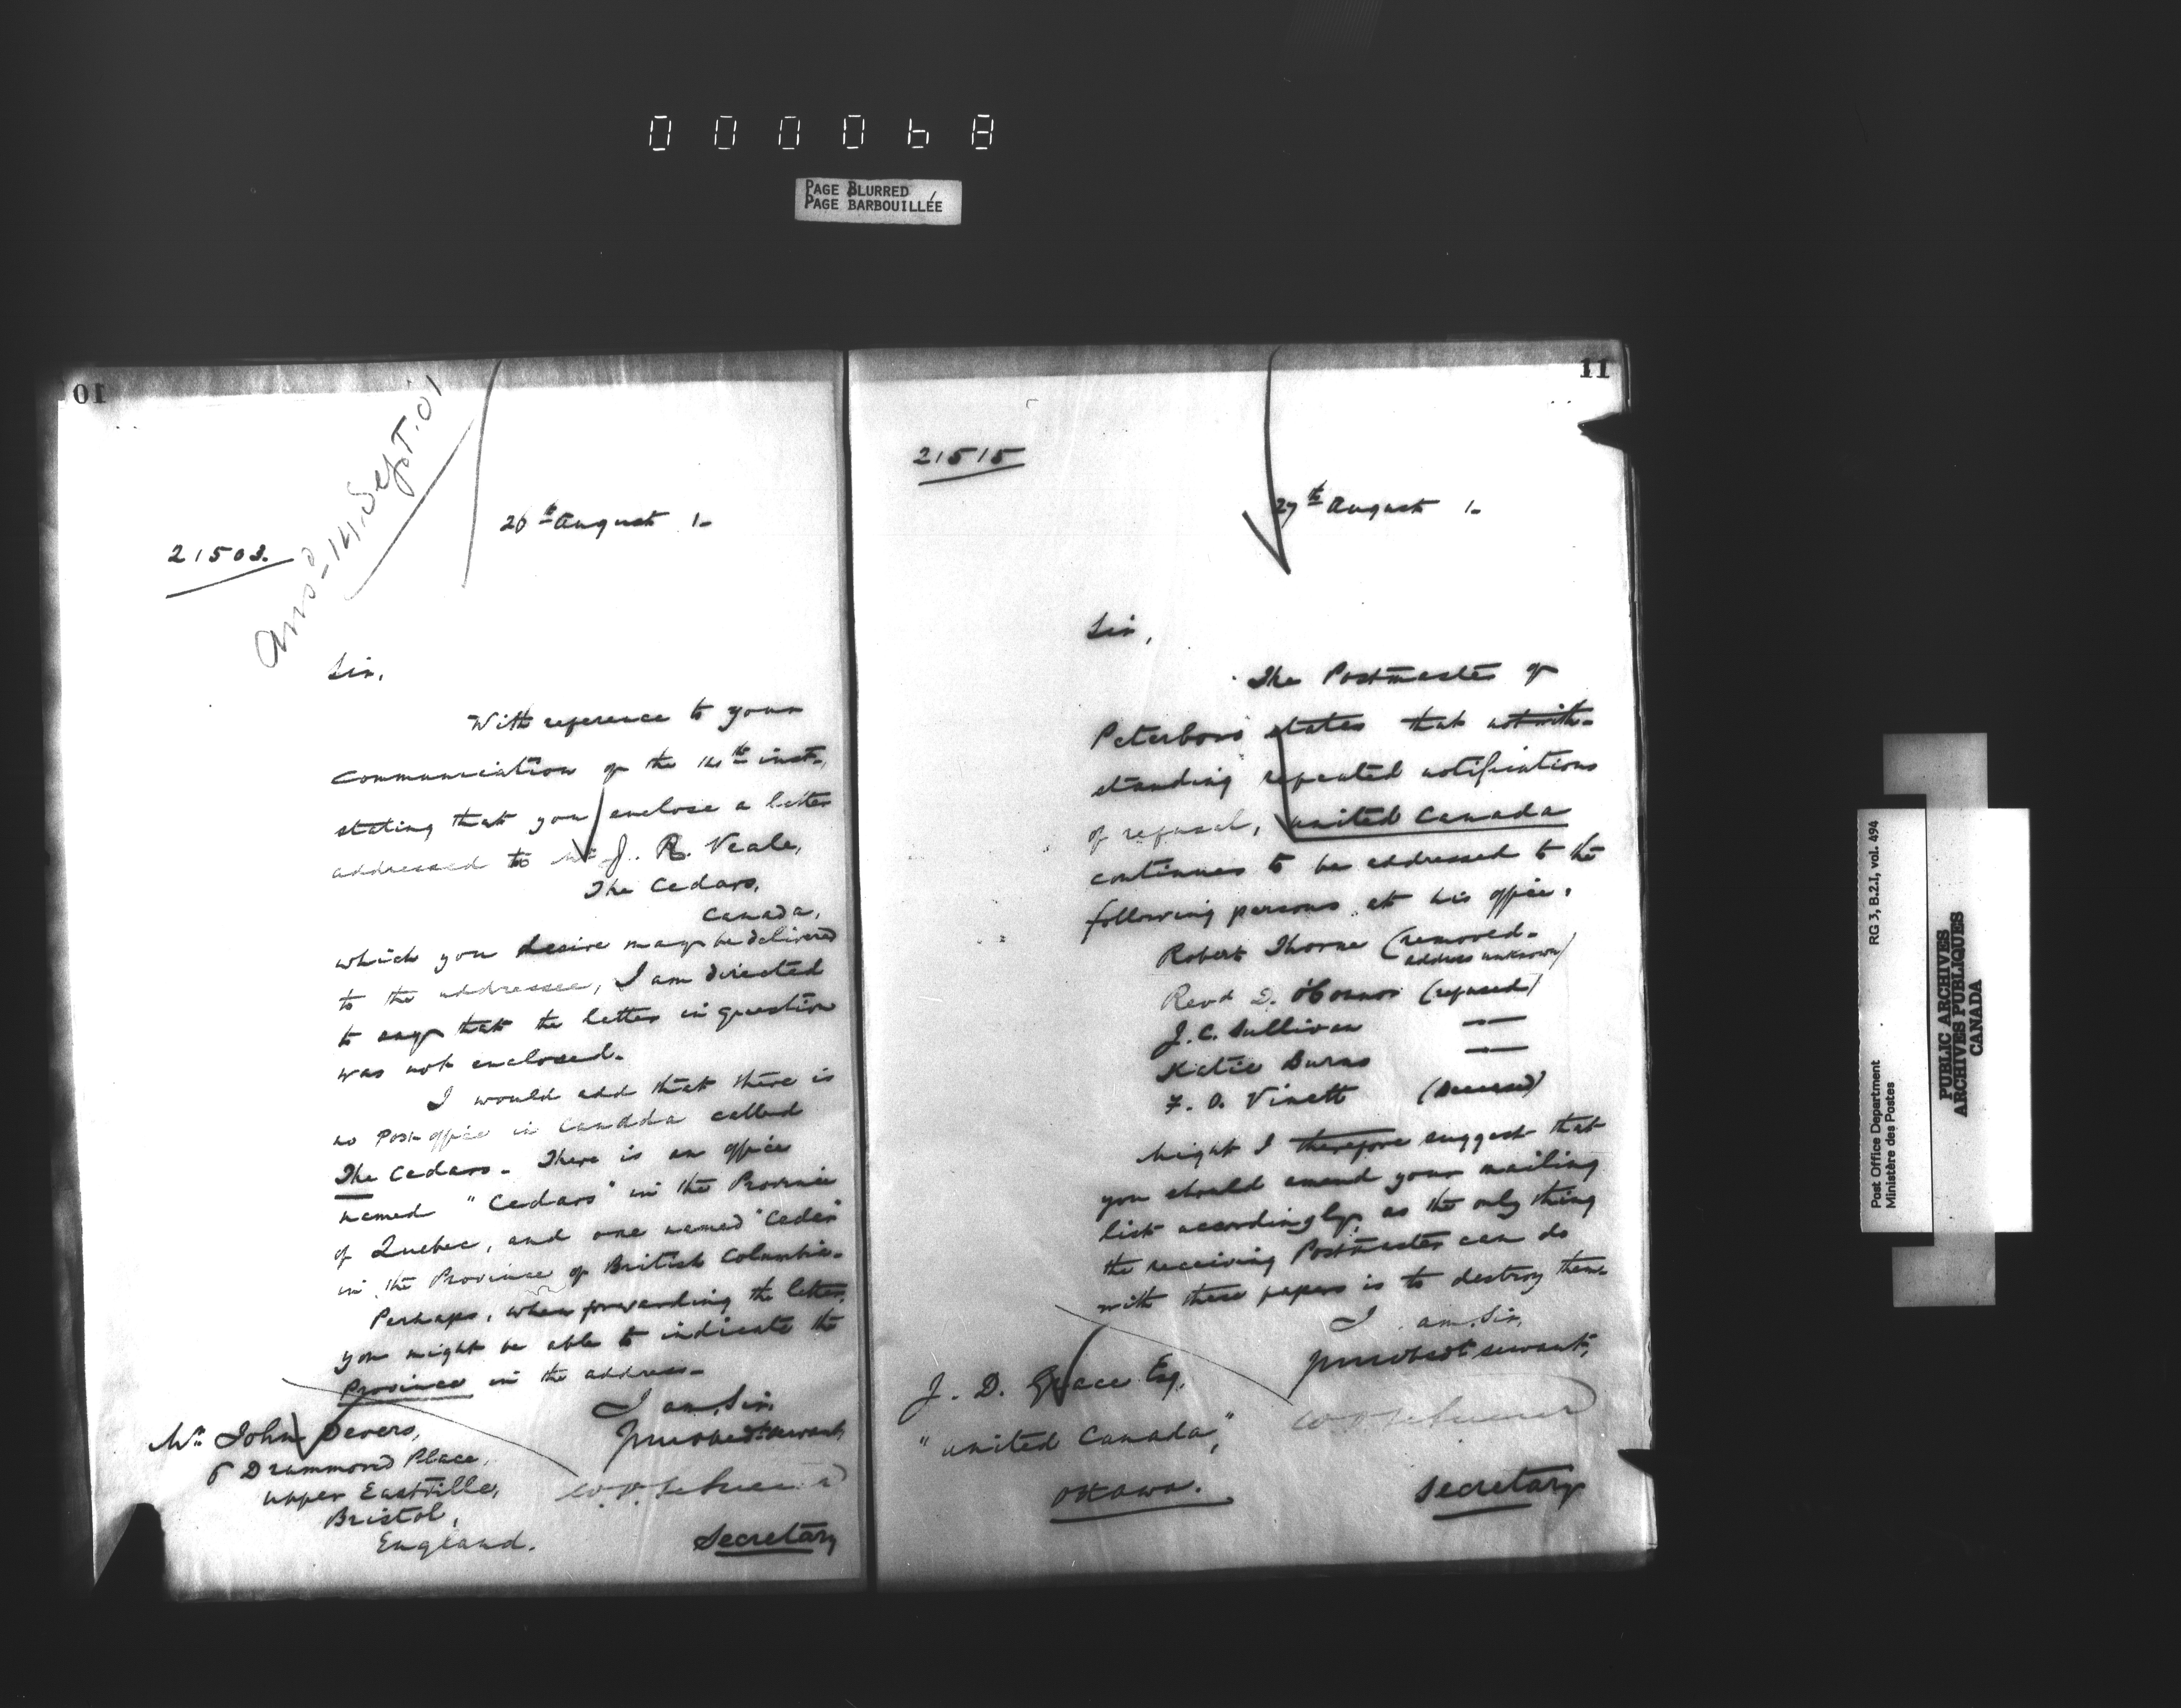 000068
PAGE BLURRED
PAGE BARBOUILLÉE
10
Ansd 14. Sept. 01
26th August 1-
21503.
Sir,
With reference to your
communication of the 14th inst.,
stating that you enclose a letter
addressed to Mr J. R. Veale,
The Cedars,
Canada,
which you desire may be delivered
to the addressee, I am directed
to say that the letter in question
was not enclosed.
I would add that there is
no Post office in Canada called
The Cedars. There is an office
named "Cedars" in the Province
of Quebec, and one named "Cedar"
in the Province of British Columbia.
Perhaps, when forwarding the letter,
you might be able to indicate the
Province in the address.
I am, Sir,
Your obedt. servant,
Secretary
Mr John Devers,
6 Drummond Place,
Upper Eastville,
Bristol,
England.
11
21515
27th August 1-
Sir,
The Postmaster of
Peterboro states that notwith-
standing repeated notifications
of refusal, United Canada
continues to be addressed to the
following persons at his office.
Robert Thorne (removed-
address unknown)
Revd D. O'Connor (refused)
J. C. Sullivan —
Katie Burns —
F. O. Vinett (Deceased)
Might I therefore suggest that
you should amend your mailing
list accordingly, as the only thing
the receiving Postmaster can do
with these papers is to destroy them.
I am, Sir,
Your obedt servant,
Secretary
J. D. Grace Esq,
"United Canada",
Ottawa.
Post Office Department
Ministère des Postes
RG 3, B.2.I, vol. 494
PUBLIC ARCHIVES
ARCHIVES PUBLIQUES
CANADA